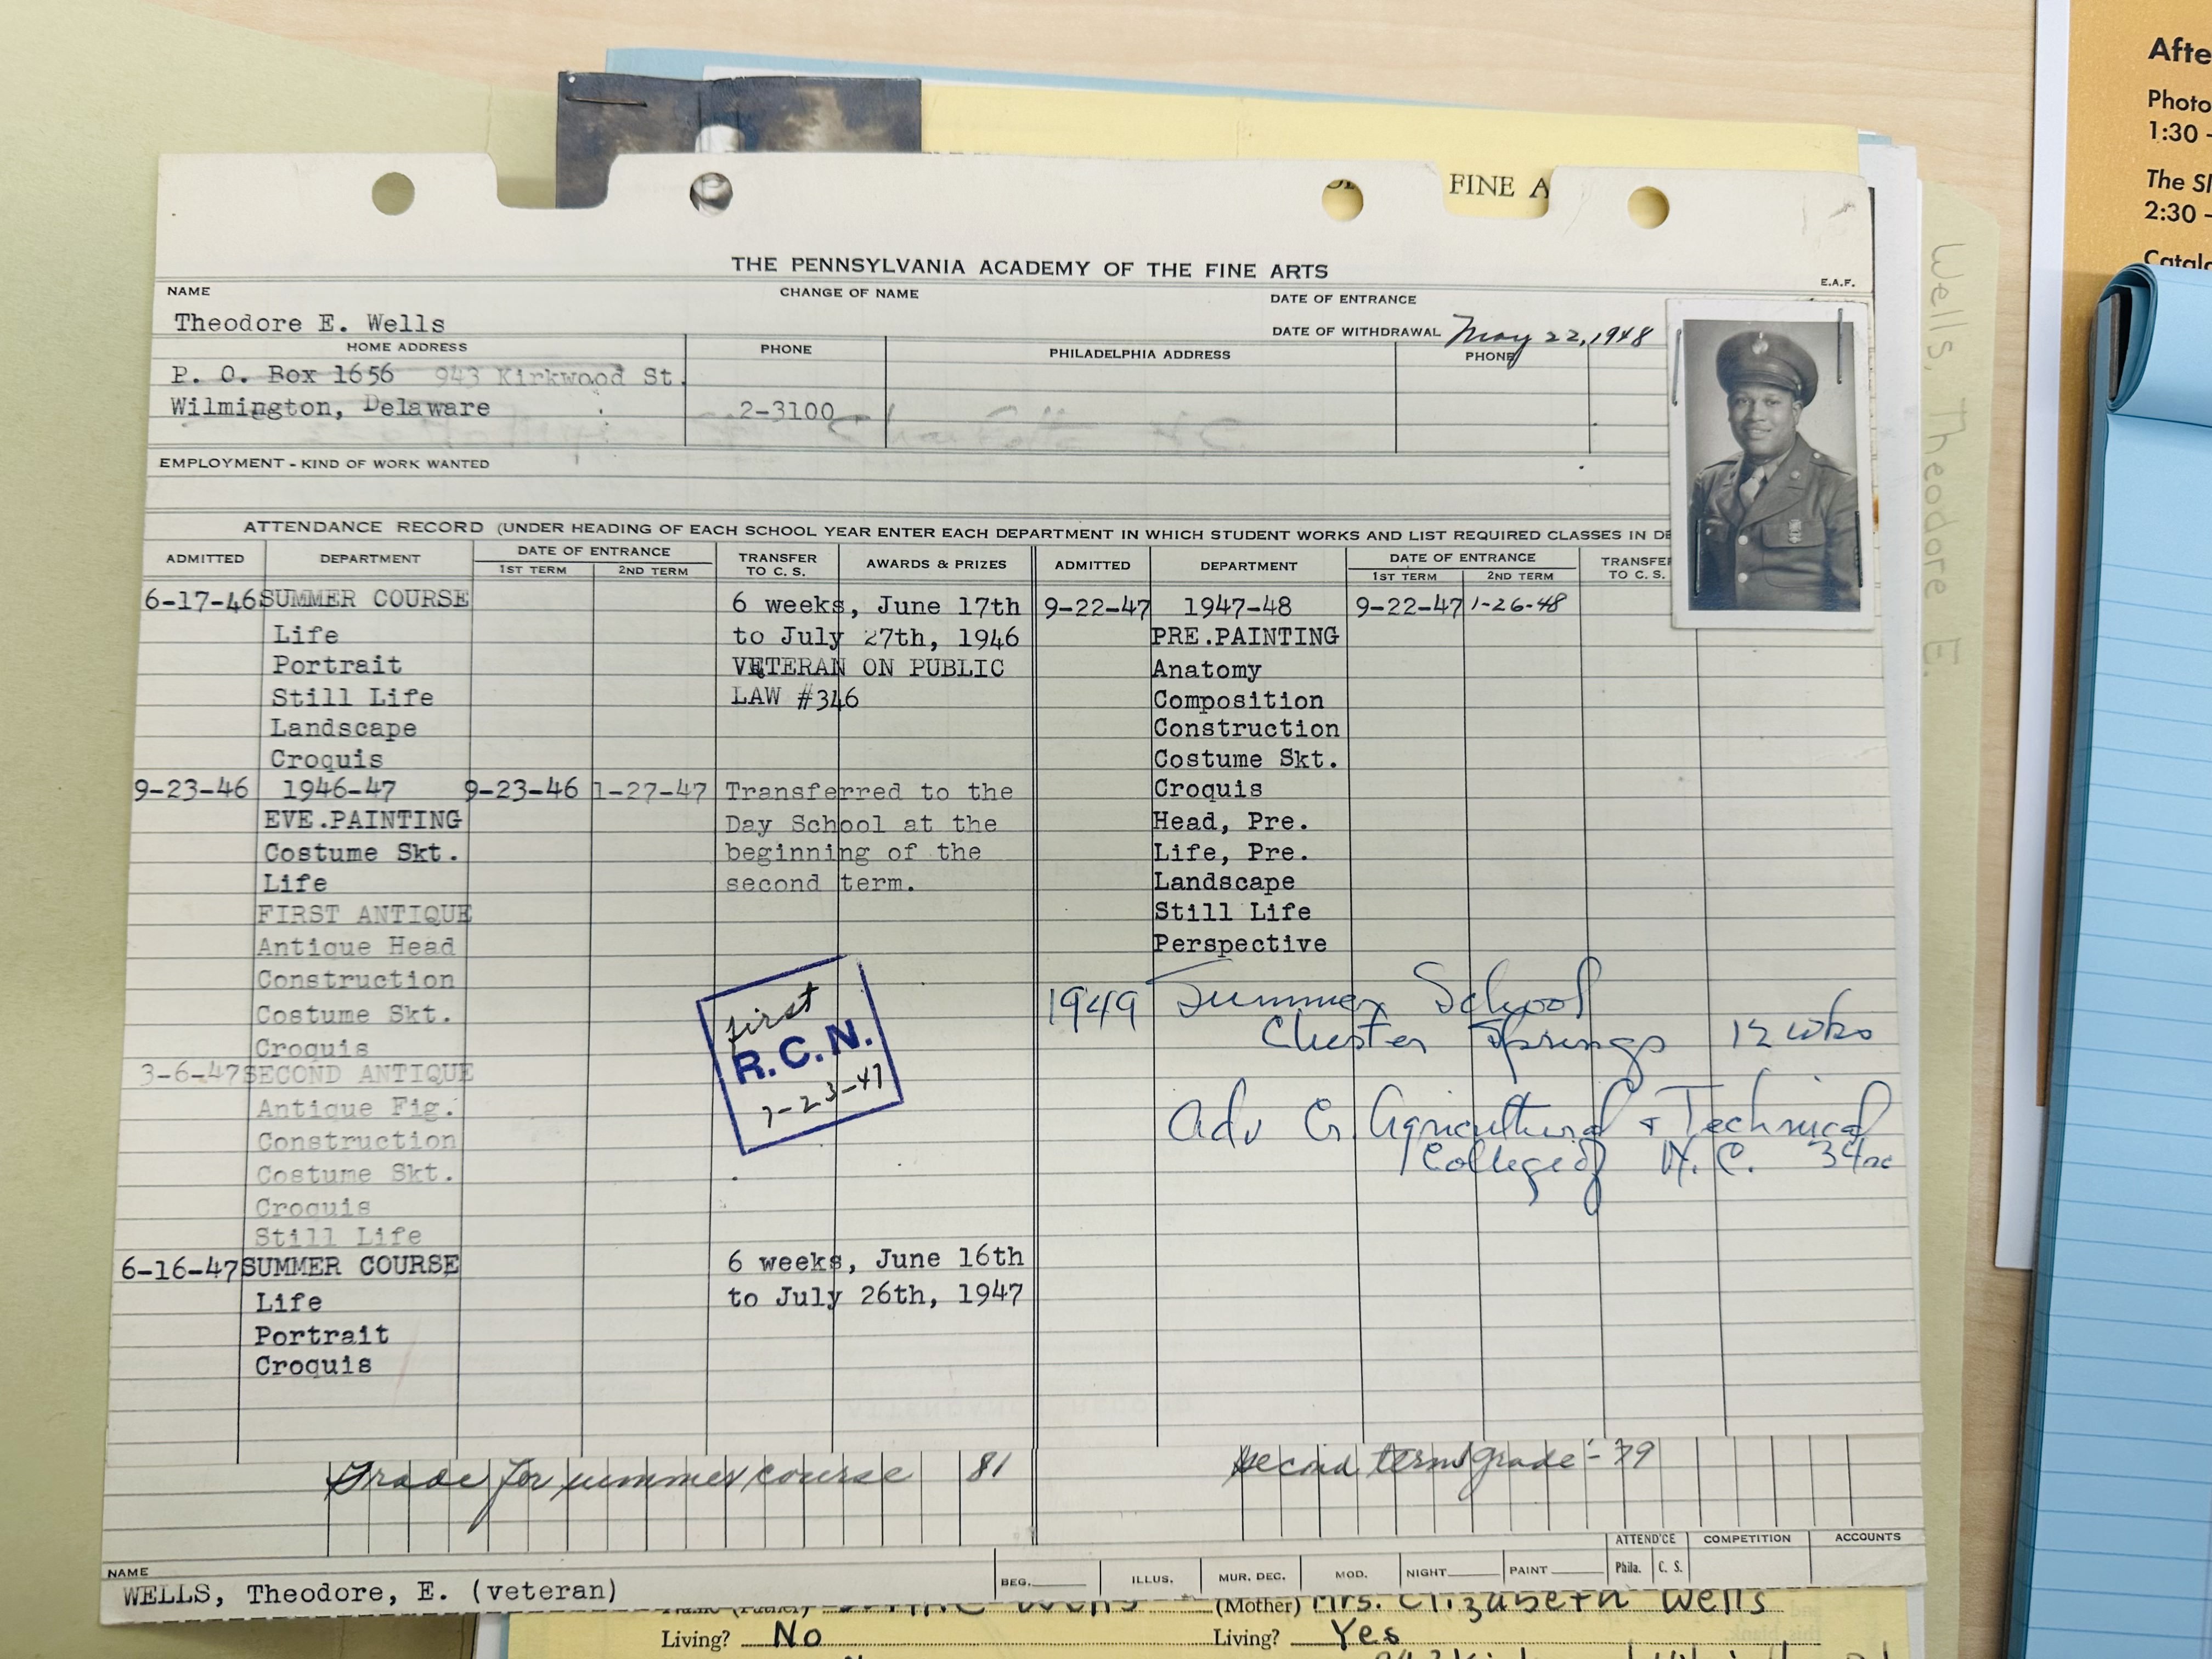 Afte
Photo
1:30 -
The Sl
2:30 -
Catalo
FINE A
Wells, Theodore E.
THE PENNSYLVANIA ACADEMY OF THE FINE ARTS
E.A.F.
NAME CHANGE OF NAME DATE OF ENTRANCE
Theodore E. Wells DATE OF WITHDRAWAL May 22, 1948
HOME ADDRESS PHONE PHILADELPHIA ADDRESS PHONE
P. O. Box 1656 943 Kirkwood St.
Wilmington, Delaware 2-3100
Charlotte N.C.
EMPLOYMENT - KIND OF WORK WANTED
ATTENDANCE RECORD (UNDER HEADING OF EACH SCHOOL YEAR ENTER EACH DEPARTMENT IN WHICH STUDENT WORKS AND LIST REQUIRED CLASSES IN DE
ADMITTED DEPARTMENT DATE OF ENTRANCE TRANSFER TO C. S. AWARDS & PRIZES ADMITTED DEPARTMENT DATE OF ENTRANCE TRANSFER TO C. S.
1ST TERM 2ND TERM 1ST TERM 2ND TERM
6-17-46 SUMMER COURSE 6 weeks, June 17th 9-22-47 1947-48 9-22-47 1-26-48
Life to July 27th, 1946 PRE.PAINTING
Portrait VETERAN ON PUBLIC Anatomy
Still Life LAW #346 Composition
Landscape Construction
Croquis Costume Skt.
9-23-46 1946-47 9-23-46 1-27-47 Transferred to the Croquis
EVE.PAINTING Day School at the Head, Pre.
Costume Skt. beginning of the Life, Pre.
Life second term. Landscape
FIRST ANTIQUE Still Life
Antique Head Perspective
Construction
Costume Skt. first 1949 Summer School
Croquis R.C.N. Chester Springs 12 wks
3-6-47 SECOND ANTIQUE 7-23-47
Antique Fig. Adv Cr. Agricultural & Technical
Construction College of N. C.
Costume Skt.
Croquis
Still Life
6-16-47 SUMMER COURSE 6 weeks, June 16th
Life to July 26th, 1947
Portrait
Croquis
Grade for summer course 81 second term grade - 79
ATTEND'CE COMPETITION ACCOUNTS
NAME BEG. ILLUS. MUR. DEC. MOD. NIGHT PAINT Phila. C. S.
WELLS, Theodore, E. (veteran)
Wells (Mother) Mrs. Elizabeth Wells
Living? No Living? Yes